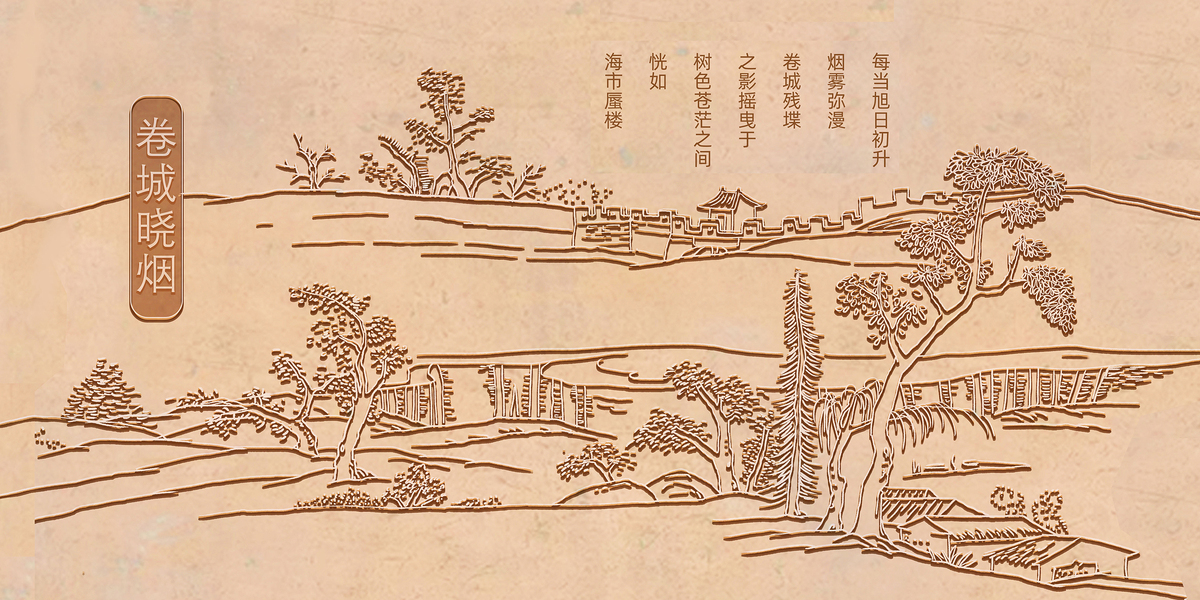 每当旭日初升
烟雾弥漫
卷城残堞
之影摇曳于
树色苍茫之间
恍如
海市蜃楼
卷城晓烟